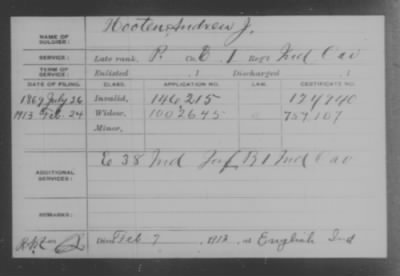 NAME OF SOLDIER: Hooten Andrew J.
SERVICE: Late rank, P. Co. E. 1 Reg't Ind Cav
TERM OF SERVICE: Enlisted , 1 Discharged , 1
DATE OF FILING. CLASS. APPLICATION NO. LAW. CERTIFICATE NO.
1869 July 26 Invalid, 146,215 174940
1913 Feb. 24 Widow, 1002645 757107
Minor,
ADDITIONAL SERVICES: E 38 Ind Inf. 1 Ind Cav
REMARKS:
Died Feb 7, 1913, at English Ind